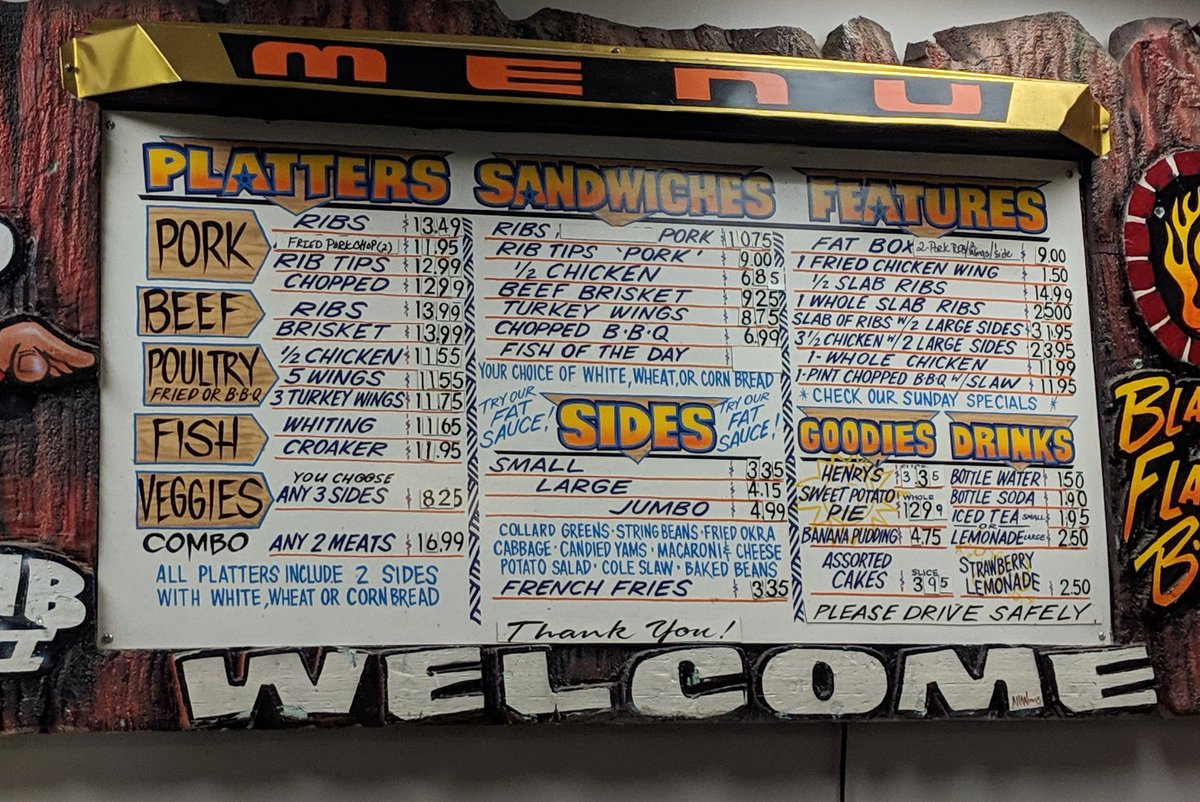 MENU
PLATTERS
PORK
RIBS $13.49
FRIED PORKCHOP(2) $11.95
RIB TIPS $12.99
CHOPPED $12.99
BEEF
RIBS $13.99
BRISKET $13.99
POULTRY
FRIED OR B·B·Q
½ CHICKEN $11.55
5 WINGS $11.55
3 TURKEY WINGS $11.75
FISH
WHITING $11.65
CROAKER $11.95
VEGGIES
YOU CHOOSE
ANY 3 SIDES $8.25
COMBO ANY 2 MEATS $16.99
ALL PLATTERS INCLUDE 2 SIDES
WITH WHITE, WHEAT OR CORN BREAD
SANDWICHES
RIBS PORK $10.75
RIB TIPS "PORK" 9.00
½ CHICKEN 6.85
BEEF BRISKET $9.25
TURKEY WINGS $8.75
CHOPPED B·B·Q $6.99
FISH OF THE DAY $
YOUR CHOICE OF WHITE, WHEAT, OR CORN BREAD
TRY OUR FAT SAUCE!
SIDES
TRY OUR FAT SAUCE!
SMALL $3.35
LARGE $4.15
JUMBO $4.99
COLLARD GREENS · STRING BEANS · FRIED OKRA
CABBAGE · CANDIED YAMS · MACARONI & CHEESE
POTATO SALAD · COLE SLAW · BAKED BEANS
FRENCH FRIES $3.35
Thank You!
FEATURES
FAT BOX 2-Pork Rib/Wings/1 Side $9.00
1 FRIED CHICKEN WING $1.50
½ SLAB RIBS $14.99
1 WHOLE SLAB RIBS $25.00
SLAB OF RIBS W/2 LARGE SIDES $31.95
3½ CHICKEN W/2 LARGE SIDES $23.95
1-WHOLE CHICKEN $11.99
1-PINT CHOPPED B·B·Q W/SLAW $11.95
* CHECK OUR SUNDAY SPECIALS *
GOODIES
HENRY'S
SWEET POTATO
PIE
SLICE $3.35
WHOLE 12.99
BANANA PUDDING $4.75
ASSORTED
CAKES
SLICE $3.95
DRINKS
BOTTLE WATER $1.50
BOTTLE SODA $1.90
ICED TEA SMALL $1.95
OR
LEMONADE LARGE $2.50
STRAWBERRY
LEMONADE $2.50
PLEASE DRIVE SAFELY
WELCOME